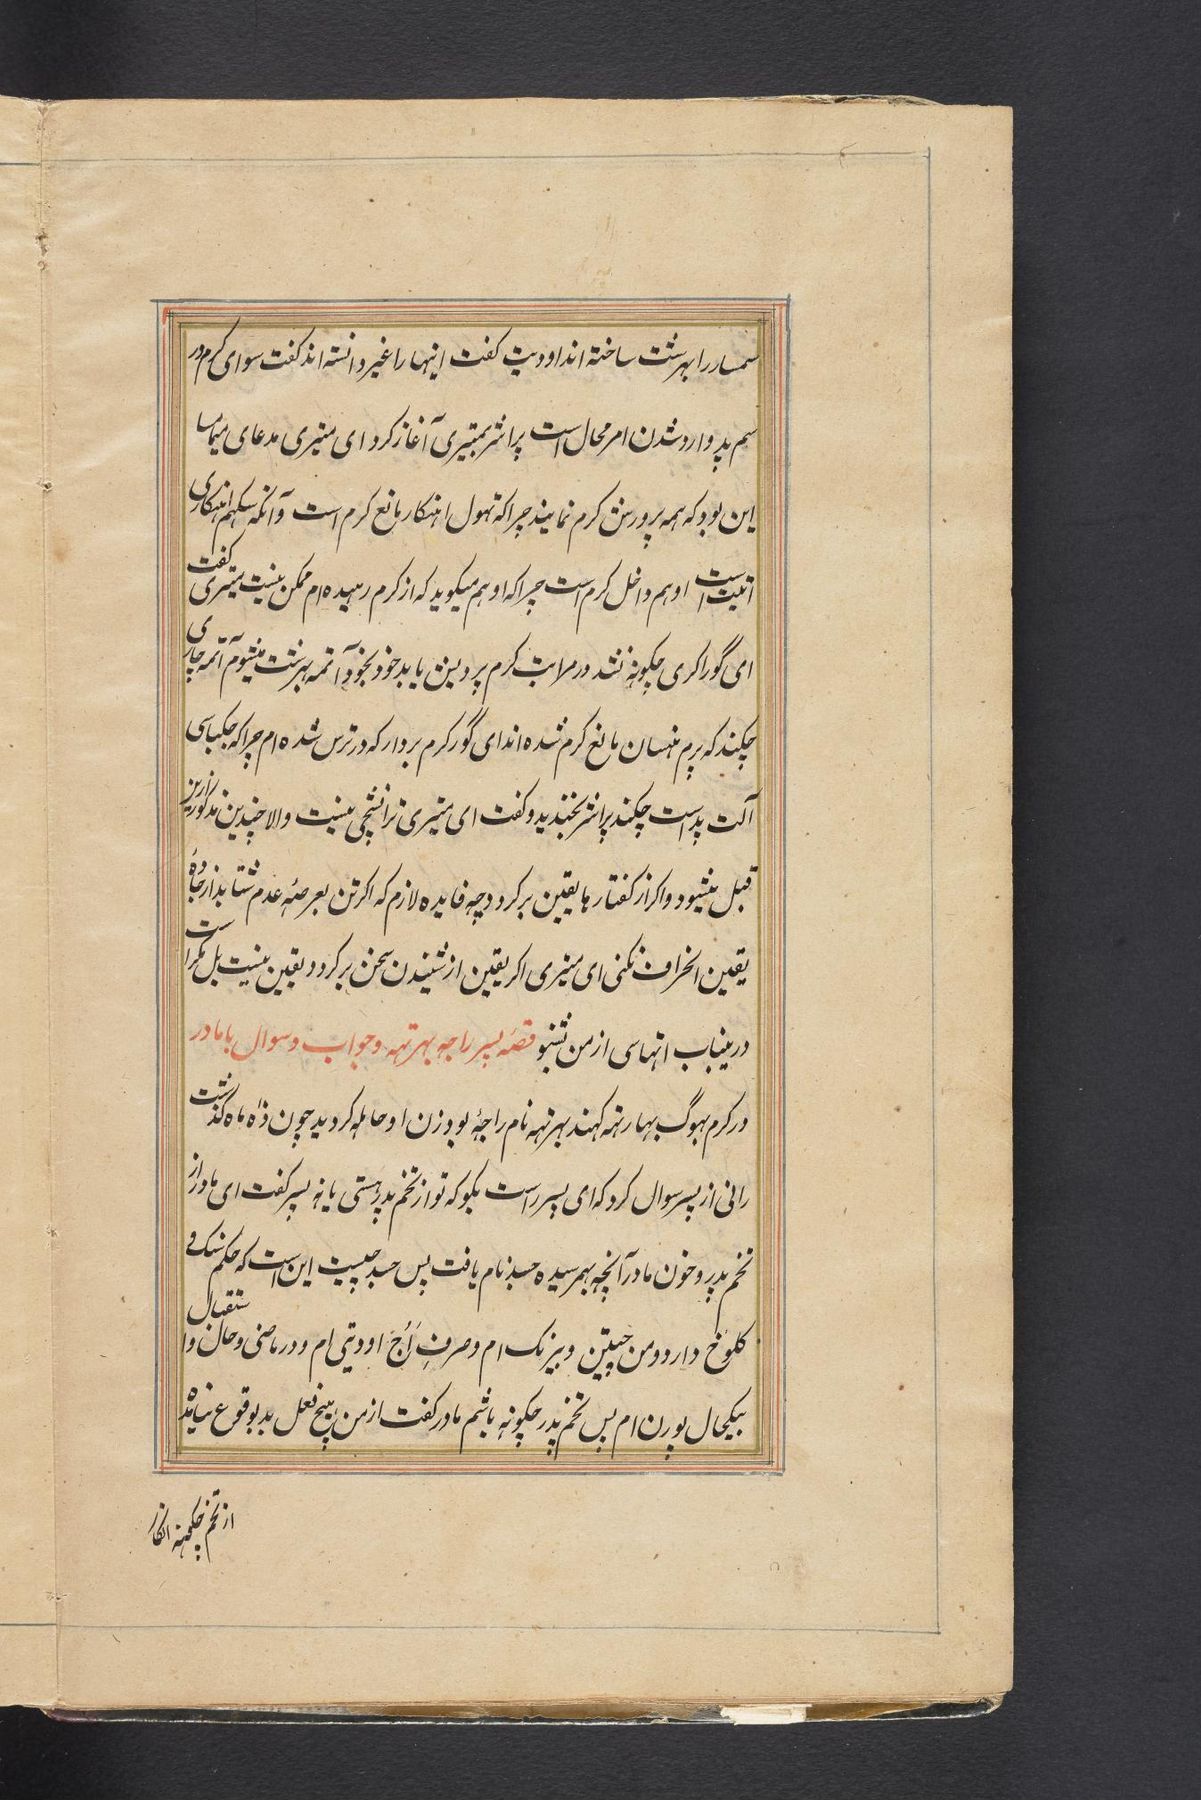 سمسار را بهرشت ساخته اند اودیت کفت اینها را غیر دانسته اند کفت سوای کرم در
سم پد وارد شدن امر محال است پراشر بمتیری آغاز کرد ای میتری مدعای میماسا
این بود که همه پرورش کرم نمایند چراکه تهول اهنکار مانع کرم است و آنکه سکهم اهنکاری
اتیت است او هم داخل کرم است چراکه او هم میکوید که از کرم رهیده ام ممکن نیست میتری کفت
ای گور اکری چکونه نشد در مراتب کرم پر دبین باید خود بخود آتمه بهرشت میشوم آتمه چاری
چکند که پرم هنسان مانع کرم شده اند ای گور کرم بردار که در ترس شده ام چراکه جکباسی
آلت پد است چکند پراشر بخندید و کفت ای میتری ترا نشچی نیست والا چندین مذکور ازین
قبیل نمیشود و اکر از کفتارها یقین برکردد چه فایده لازم که اکر تن بعرصهٔ عدم شتابد از جادهٔ
یقین انحراف نکنی ای میتری اکر یقین از شنیدن سخن برکردد یقین نیست بل مکر است
درینباب اتهاسی از من بشنو قصهٔ پسر راجه بهرتهه و جواب و سوال با مادر
در کرم بهوگ بهارتهه کهند بهرتهه نام راجهٔ بود زن او حامله کردید چون ده ماه کذشت
رانی از پسر سوال کرد که ای پسر راست بکو که تو از تخم پدر هستی یا نه پسر کفت ای مادر از
تخم پدر و خون مادر آنچه بهمرسیده جسد نام یافت پس جسد چیست این است که حکم سنک و
کلوخ دارد و من چیتن و بیرنک ام و صرفِ اَجَ اودیتی ام و در ماضی و حال و استقبال
بیکحال پورن ام پس تخم پدر چکونه باشم مادر کفت از من هیچ فعل بد بوقوع نیامده
از تخم چکهنه انکار